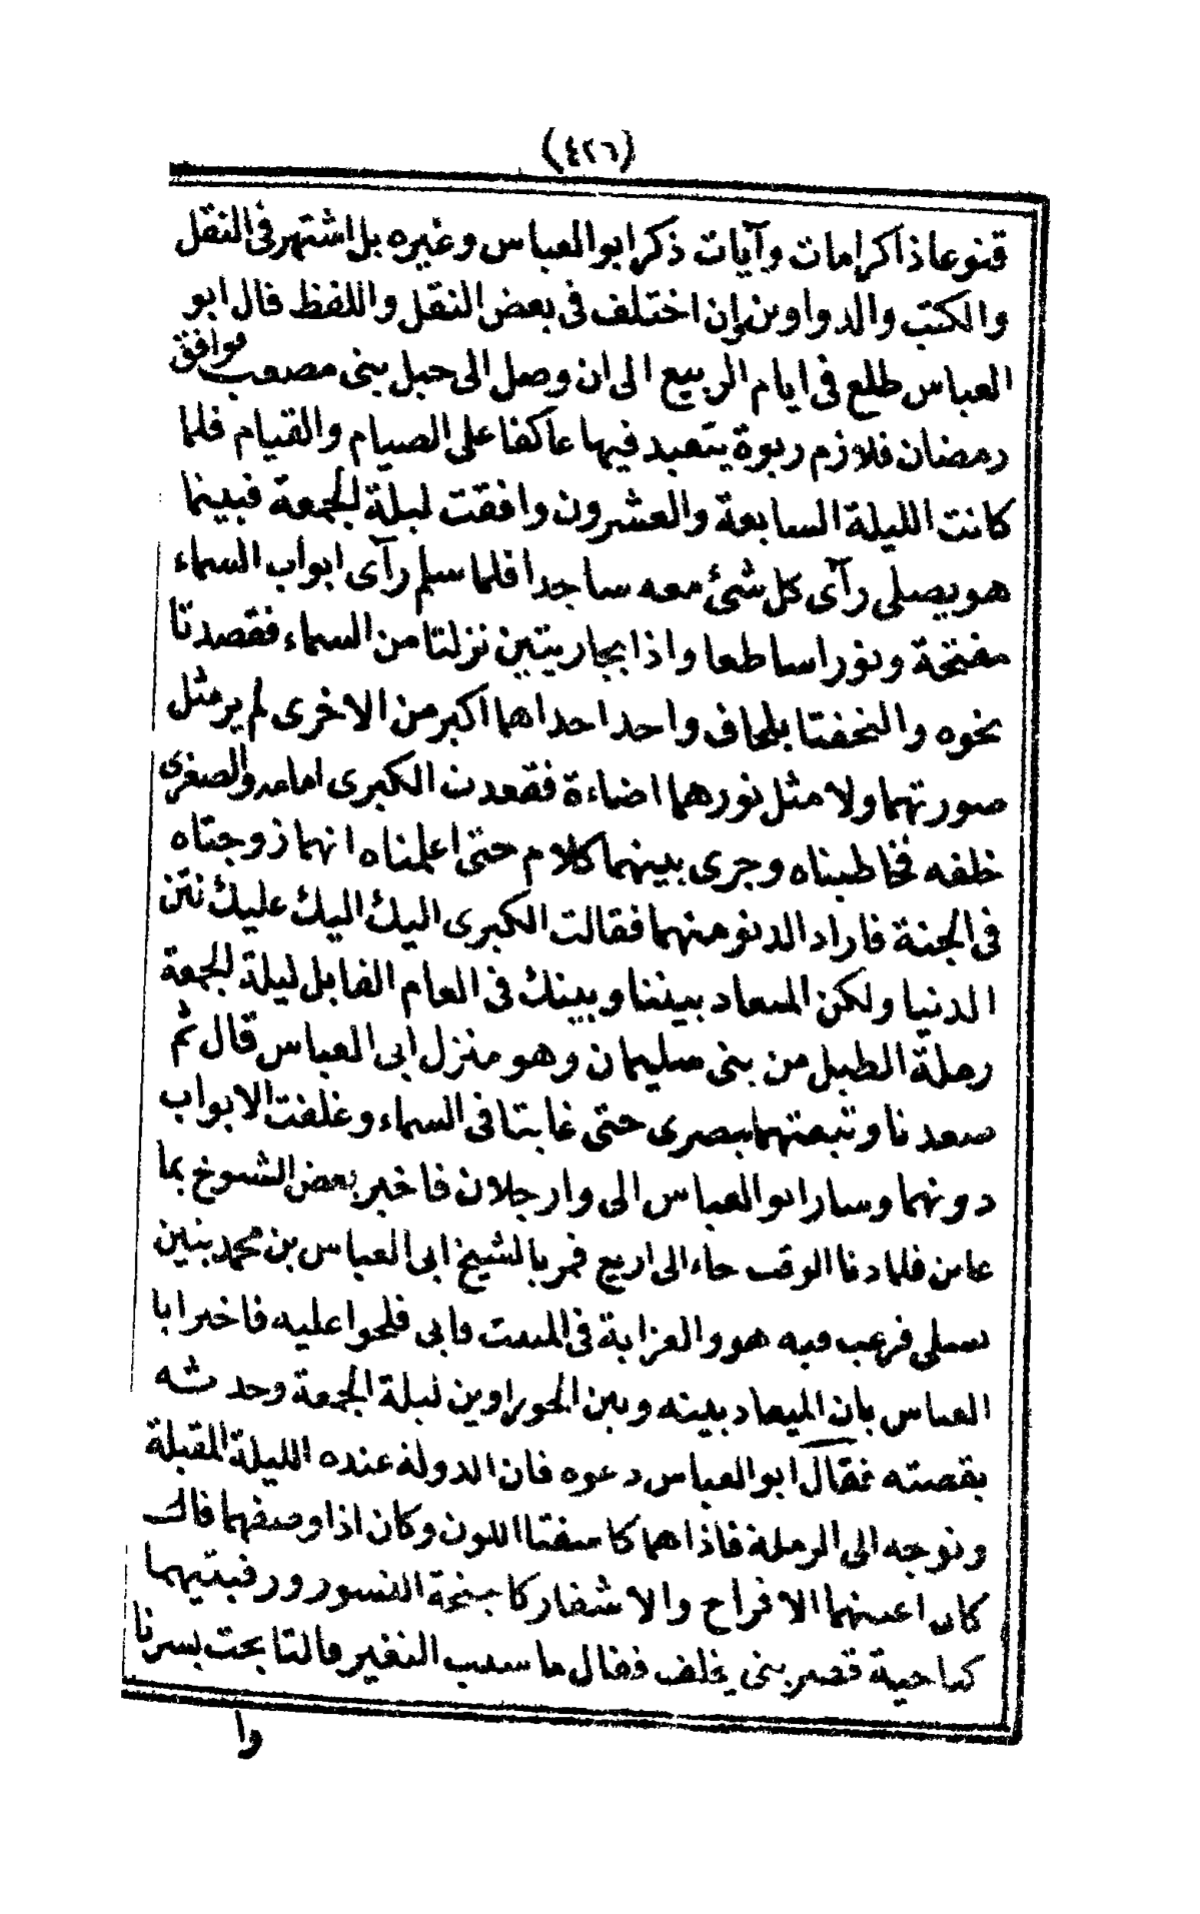 (٤٢٦)
قنوعا ذا كرامات وآيات ذكر ابو العباس وغيره بل اشتهر فى النقل
والكتب والدواوين وان اختلف فى بعض النقل واللفظ قال ابو
العباس طلع فى ايام الربيع الى ان وصل الى جبل بنى مصعب فوافق
رمضان فلازم ربوة يتعبد فيها عاكفا على الصيام والقيام فلما
كانت الليلة السابعة والعشرون وافقت ليلة الجمعة فبينما
هو يصلى رآى كل شئ معه ساجدا فلما سلم رآى ابواب السماء
مفتحة ونورا ساطعا واذا بجاريتين نزلتا من السماء فقصدتا
نحوه والتحفتا بلحاف واحد احداهما اكبر من الاخرى لم ير مثل
صورتهما ولا مثل نورهما اضاءة فقعدت الكبرى امامه والصغرى
خلفه فخاطبتاه وجرى بينهما كلام حتى اعلمتاه انهما زوجتاه
فى الجنة فاراد الدنو منهما فقالت الكبرى اليك اليك عليك نتن
الدنيا ولكن الميعاد بيننا وبينك فى العام القابل ليلة الجمعة
رملة الطبل من بنى سليمان وهو منزل ابى العباس قال ثم
صعدتا وتبعتهما ببصرى حتى غابتا فى السماء وغلقت الابواب
دونهما وسار ابو العباس الى وارجلان فاخبر بعض الشيوخ بما
عاين فلما دنا الوقت جاء الى اريغ فمر بالشيخ ابى العباس بن محمد بتين
يسلى فرغب فيه هو والعزابة فى المبيت فابى فلحوا عليه فاخبر ابا
العباس بان الميعاد بينه وبين الحوراوين ليلة الجمعة وحدثه
بقصته فقال ابو العباس دعوه فان الدولة عنده الليلة المقبلة
وتوجه الى الرملة فاذا هما كاسفتا اللون وكان اذا وصفهما قال
كان اعينهما الافراح والاشفار كاجنحة النسور ورقبتيهما
كناحية قصر بنى يخلف فقال ما سبب التغير قالتا بحت بسرنا
وا